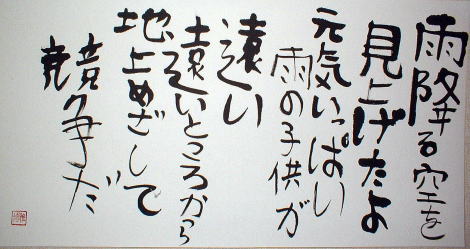 雨降る空を
見上げたよ
元気いっぱい
雨の子供が
遠い
遠いところから
地上めざして
競争だ